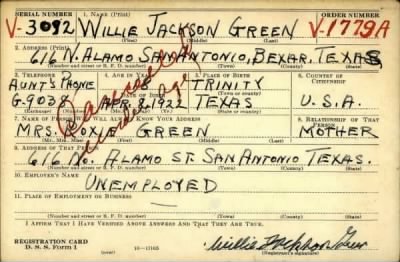 SERIAL NUMBER 1. NAME (Print) ORDER NUMBER
V-3092 WILLIE JACKSON GREEN V-1779A
(First) (Middle) (Last)
2. ADDRESS (Print)
616 N. ALAMO SAN ANTONIO, BEXAR, TEXAS
(Number and street or R. F. D. number) (Town) (County) (State)
3. TELEPHONE 4. AGE IN YEARS 5. PLACE OF BIRTH 6. COUNTRY OF CITIZENSHIP
AUNT'S PHONE TRINITY
G-9038 APR. 8, 1922 TEXAS U.S.A.
7. NAME OF PERSON WHO WILL ALWAYS KNOW YOUR ADDRESS 8. RELATIONSHIP OF THAT PERSON
MRS. ROXIE GREEN MOTHER
(Mr., Mrs., Miss) (First) (Middle) (Last)
9. ADDRESS OF THAT PERSON
616 NO. ALAMO ST. SAN ANTONIO TEXAS.
(Number and street or R. F. D. number) (Town) (County) (State)
10. EMPLOYER'S NAME
UNEMPLOYED
11. PLACE OF EMPLOYMENT OR BUSINESS
(Number and street or R. F. D. number) (Town) (County) (State)
I AFFIRM THAT I HAVE VERIFIED ABOVE ANSWERS AND THAT THEY ARE TRUE.
REGISTRATION CARD
D. S. S. Form 1 16—17105 Willie Jackson Green
(Registrant's signature)